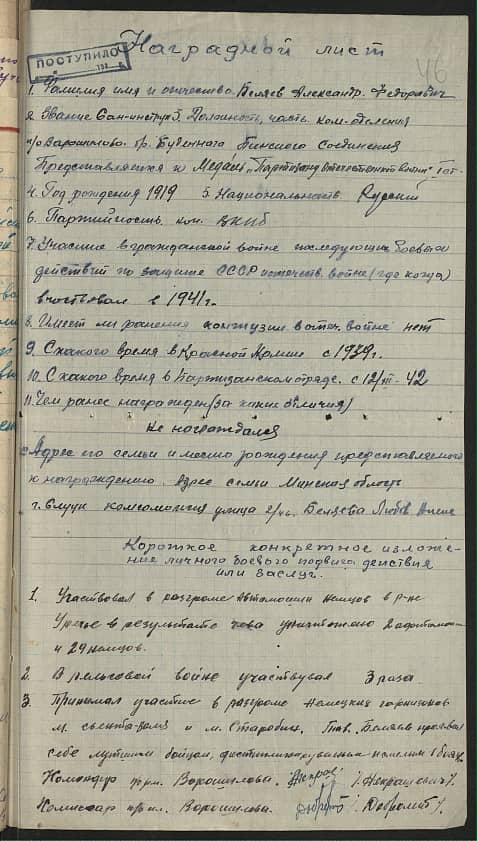 ПОСТУПИЛО
46
Наградной лист
1. Фамилия имя и отчество Беляев Александр. Федорович
2. Звание Сан-инструк 3. Должность, часть. ком. отделения
п/о Ворошилова бр. Буденного Пинского Соединения
Представляется к Медали „Партизану Отечественной войны" I ст.
4. Год рождения 1919 5. Национальность. Русский
6. Партийность. кан. ВКПб
7. Участие в гражданской войне последующих боевых
действий по защите СССР отечеств. войне (где когда)
участвовал с 1941 г.
8. Имеет ли ранения контузии в отеч. войне нет
9. С какого время в Красной Армии с 1939 г.
10. С какого время в Партизанском отряде. с 12/III - 42
11. Чем ранее награжден (за какие отличия)
Не награждался
Адрес его семьи и место рождения представляемого
к награждению. Адрес семьи Минская область
г. Слуцк комсомольская улица Беляева Любовь
Короткое конкретное изложе-
ние личного боевого подвига действия
или заслуг.
1. Участвовал в разгроме Автомашин немцев в р-не
Уречье в результате чего уничтожено 2 автомаш.
и 29 немцев.
2. В рельсовой войне участвовал 3 раза.
3. Принимал участие в разгроме немецких гарнизонов
м. и м. Старобин. Тов. Беляев проявил
себе лутшим бойцом, дисциплинированным в бою.
Командир п/о им. Ворошилова. /Некрашевич/.
Комиссар п/о им. Ворошилова. /Добролет/.